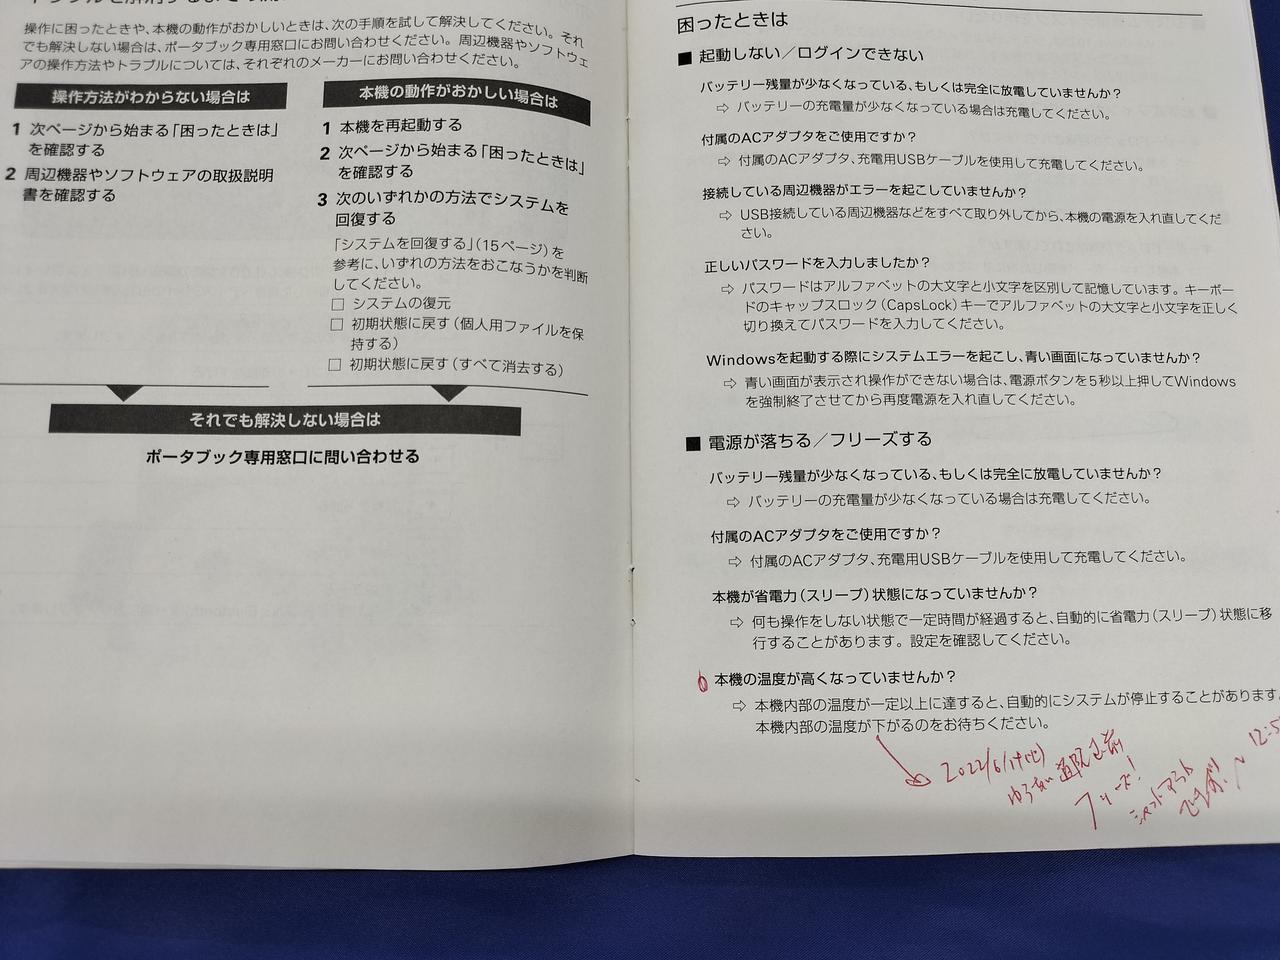 操作に困ったときや、本機の動作がおかしいときは、次の手順を試して解決してください。それ
でも解決しない場合は、ポータブック専用窓口にお問い合わせください。周辺機器やソフトウェ
アの操作方法やトラブルについては、それぞれのメーカーにお問い合わせください。
操作方法がわからない場合は
1 次ページから始まる「困ったときは」
を確認する
2 周辺機器やソフトウェアの取扱説明
書を確認する
本機の動作がおかしい場合は
1 本機を再起動する
2 次ページから始まる「困ったときは」
を確認する
3 次のいずれかの方法でシステムを
回復する
「システムを回復する」(15ページ)を
参考に、いずれの方法をおこなうかを判断
してください。
□ システムの復元
□ 初期状態に戻す(個人用ファイルを保
持する)
□ 初期状態に戻す(すべて消去する)
それでも解決しない場合は
ポータブック専用窓口に問い合わせる
困ったときは
■ 起動しない/ログインできない
バッテリー残量が少なくなっている、もしくは完全に放電していませんか?
⇨ バッテリーの充電量が少なくなっている場合は充電してください。
付属のACアダプタをご使用ですか?
⇨ 付属のACアダプタ、充電用USBケーブルを使用して充電してください。
接続している周辺機器がエラーを起こしていませんか?
⇨ USB接続している周辺機器などをすべて取り外してから、本機の電源を入れ直してくだ
さい。
正しいパスワードを入力しましたか?
⇨ パスワードはアルファベットの大文字と小文字を区別して記憶しています。キーボー
ドのキャップスロック(CapsLock)キーでアルファベットの大文字と小文字を正しく
切り換えてパスワードを入力してください。
Windowsを起動する際にシステムエラーを起こし、青い画面になっていませんか?
⇨ 青い画面が表示され操作ができない場合は、電源ボタンを5秒以上押してWindows
を強制終了させてから再度電源を入れ直してください。
■ 電源が落ちる/フリーズする
バッテリー残量が少なくなっている、もしくは完全に放電していませんか?
⇨ バッテリーの充電量が少なくなっている場合は充電してください。
付属のACアダプタをご使用ですか?
⇨ 付属のACアダプタ、充電用USBケーブルを使用して充電してください。
本機が省電力(スリープ)状態になっていませんか?
⇨ 何も操作をしない状態で一定時間が経過すると、自動的に省電力(スリープ)状態に移
行することがあります。設定を確認してください。
本機の温度が高くなっていませんか?
⇨ 本機内部の温度が一定以上に達すると、自動的にシステムが停止することがあります。
本機内部の温度が下がるのをお待ちください。
2022/6/14(火)
フリーズ!
シャットダウン
できず!